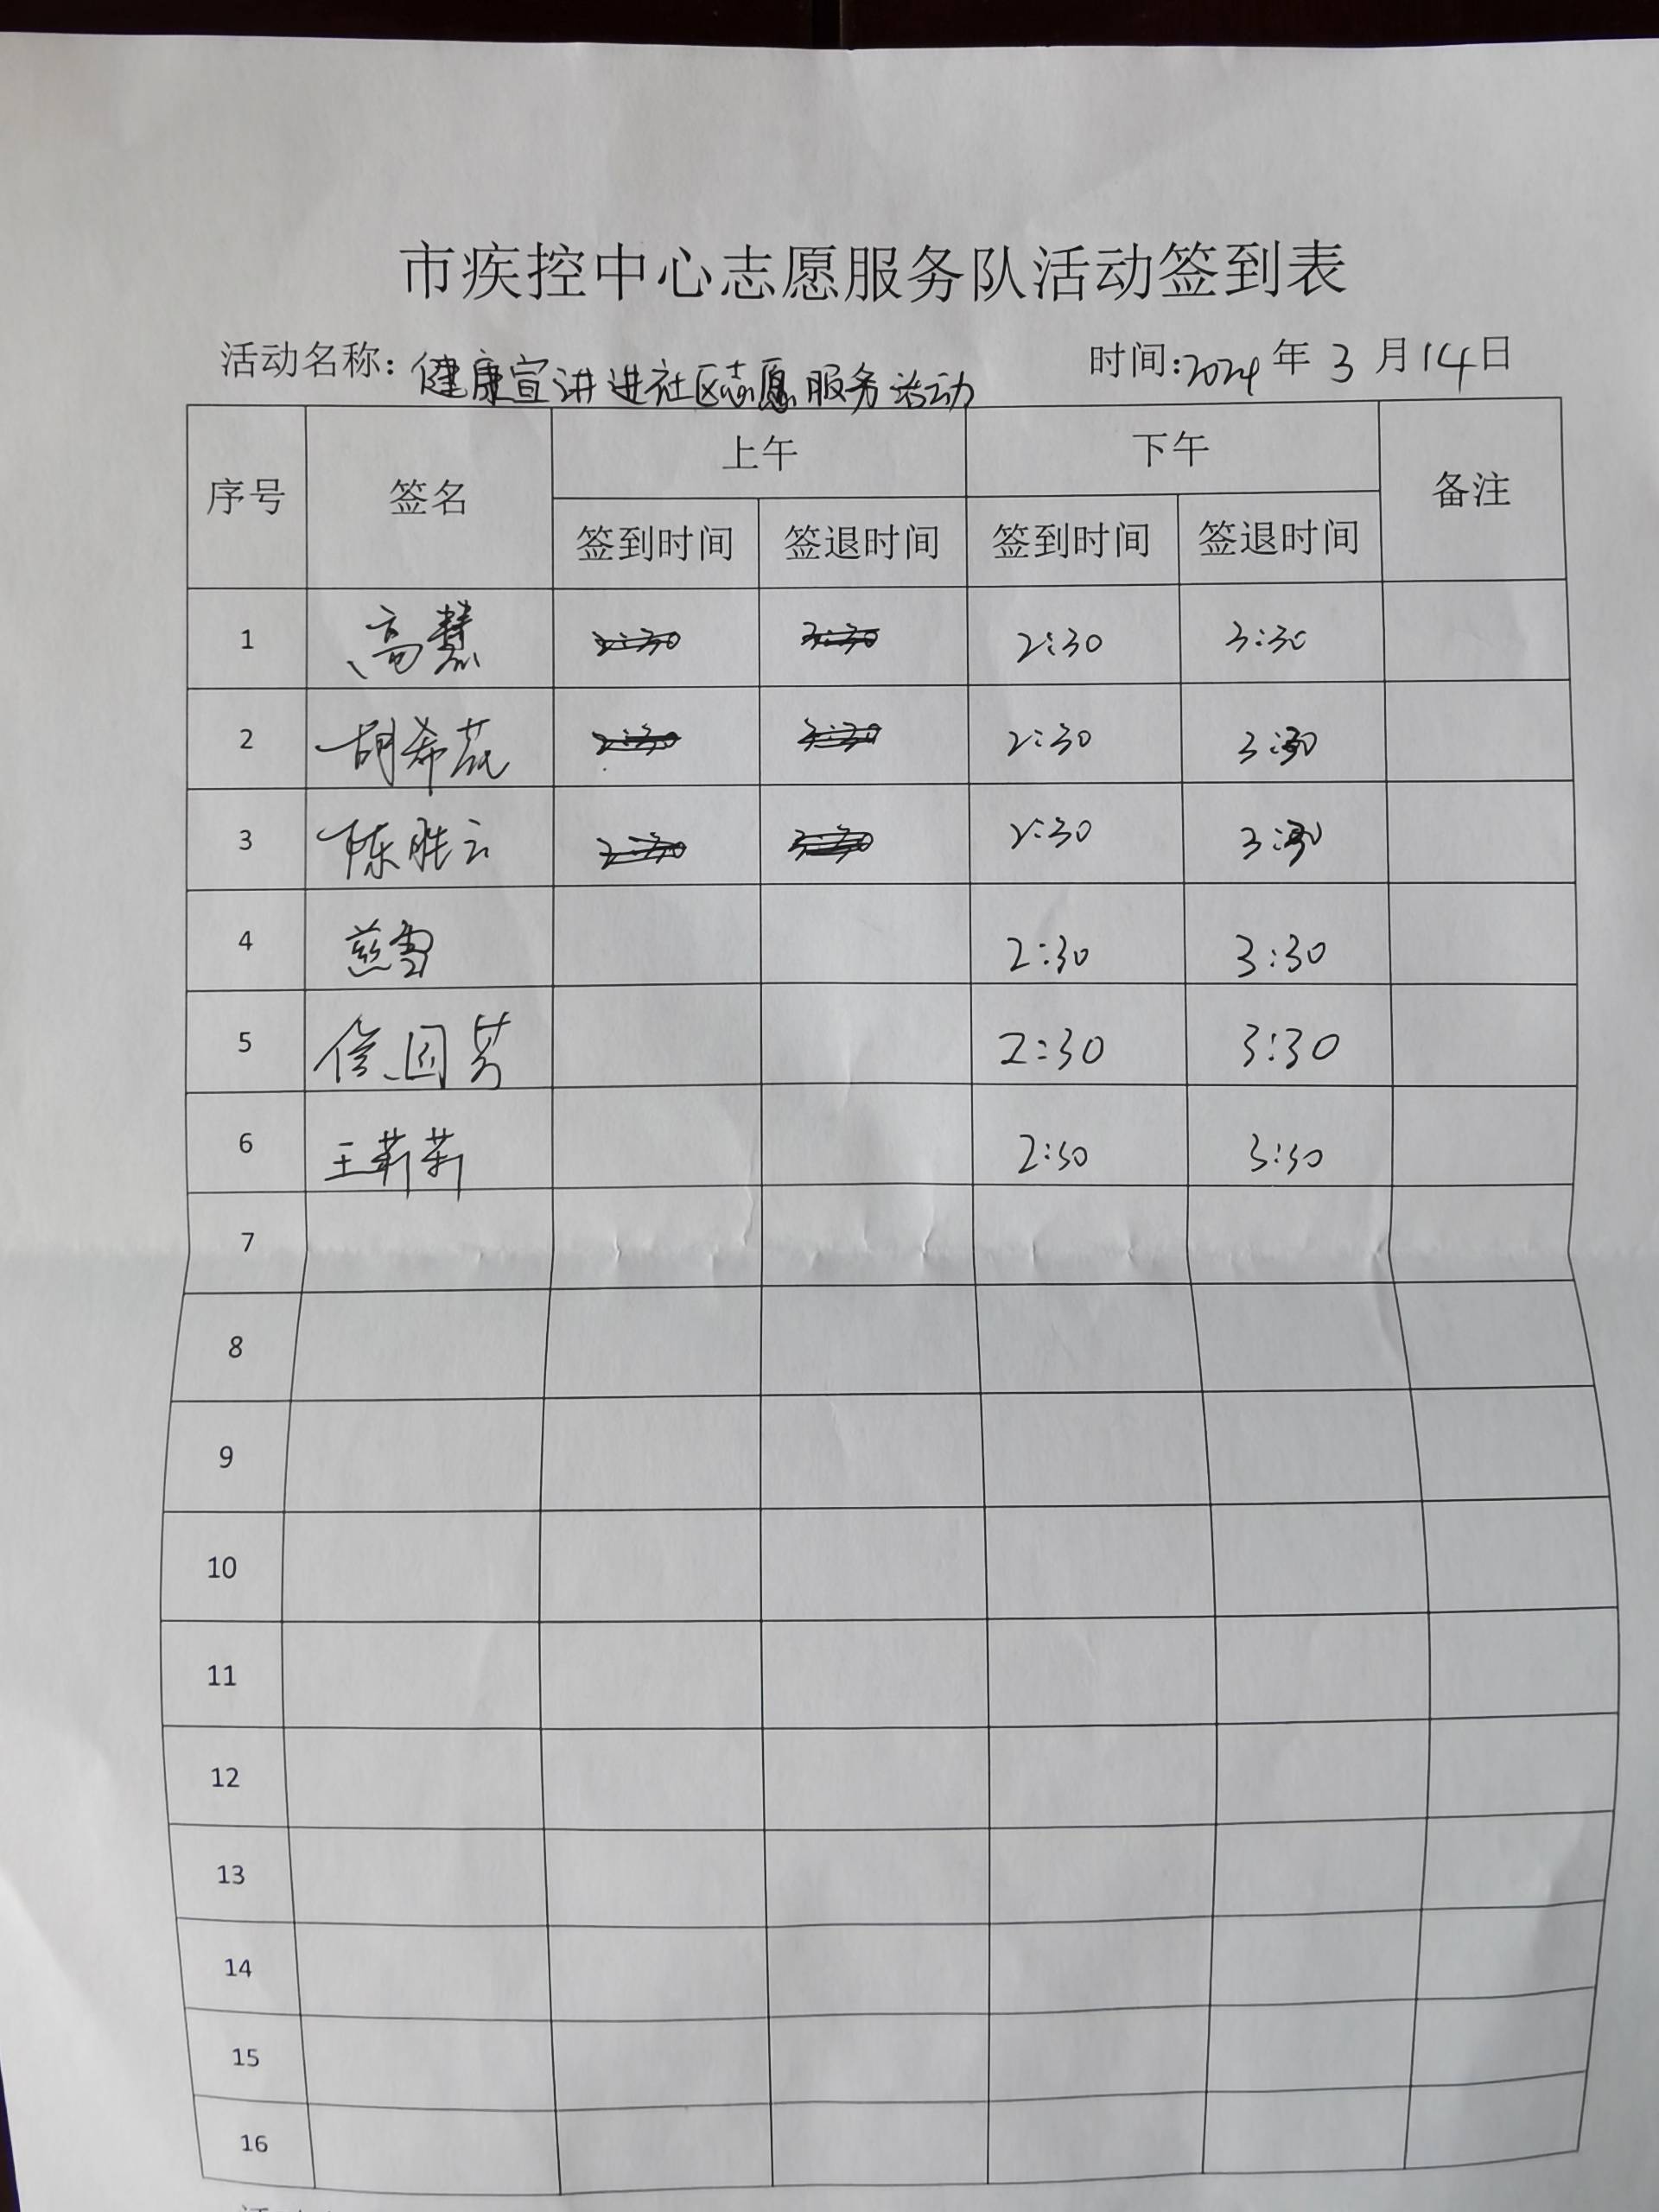 市疾控中心志愿服务队活动签到表
活动名称：健康宣讲进社区志愿服务活动 时间：2024年3月14日
序号 签名 上午 下午 备注
签到时间 签退时间 签到时间 签退时间
1 高慧 2:30 3:30 2:30 3:30
2 胡希 2:30 3:30 2:30 3:30
3 陈胜云 2:30 3:30 2:30 3:30
4 2:30 3:30
5 2:30 3:30
6 王莉莉 2:30 3:30
7
8
9
10
11
12
13
14
15
16